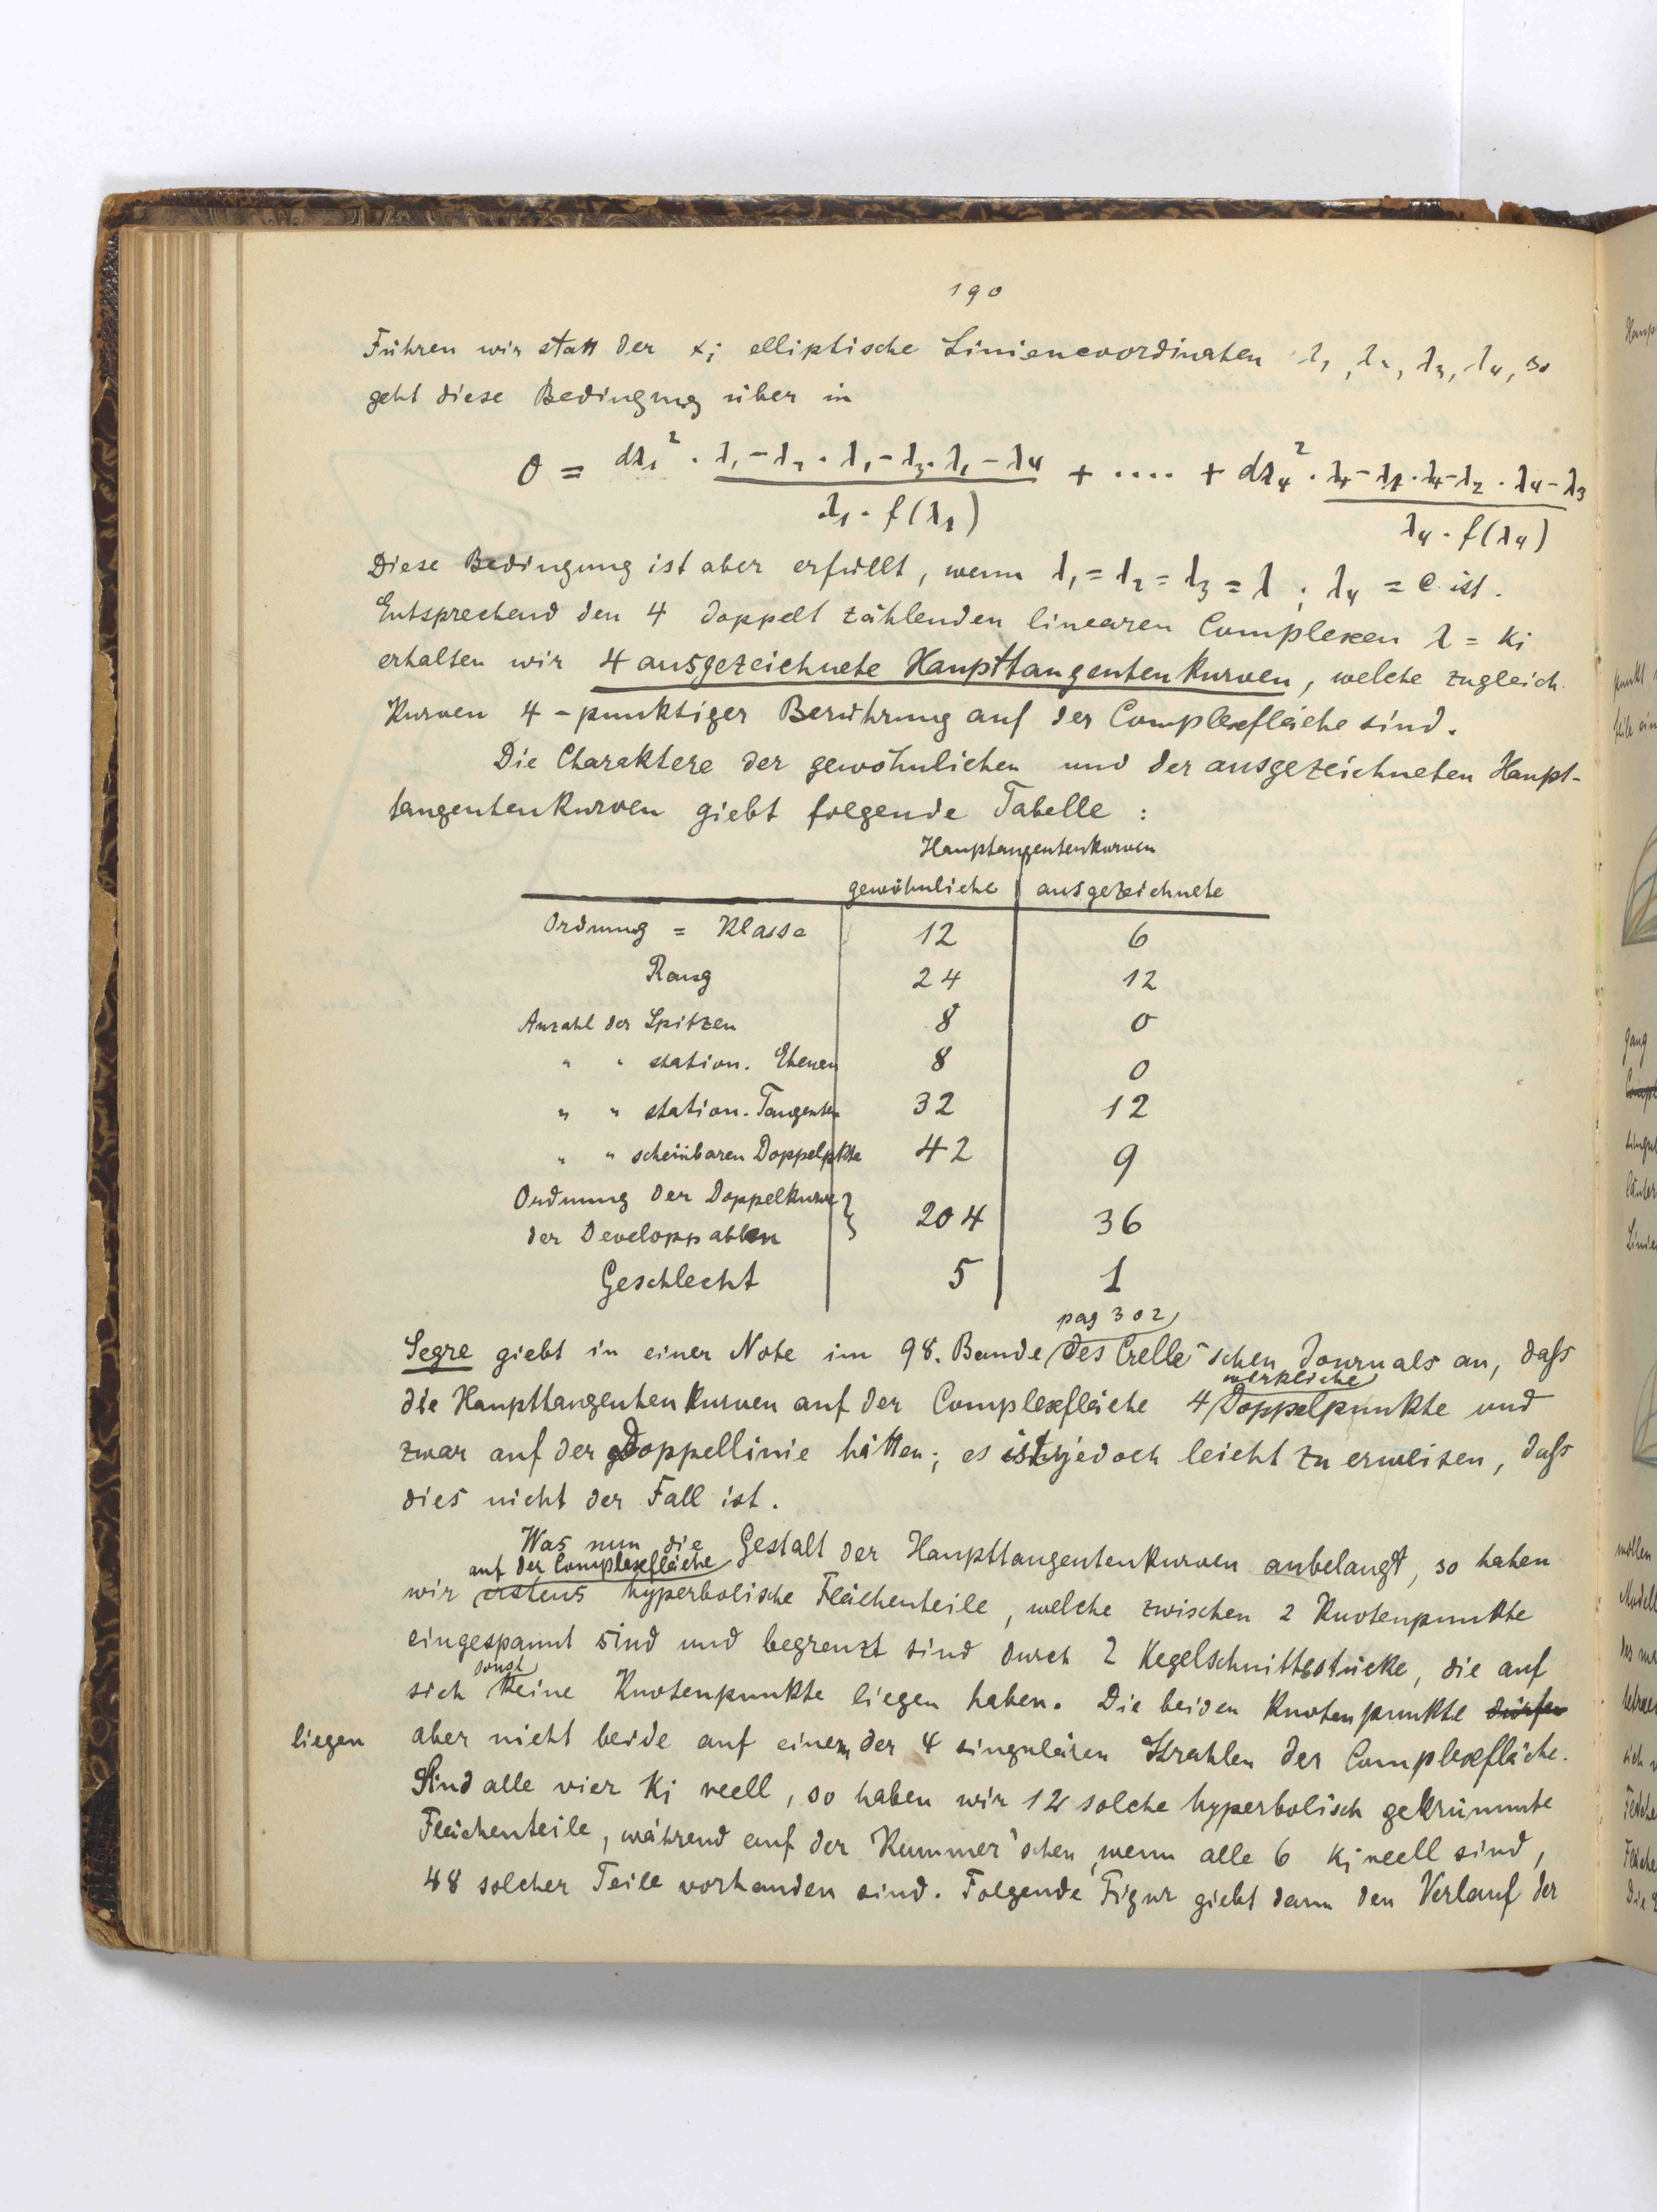 190
Führen wir statt der x; elliptische Liniencoordinaten λ₁, λ₂, λ₃, λ₄, so
geht diese Bedingung über in
0 = dλ₁² · (λ₁-λ₂ · λ₁-λ₃ · λ₁-λ₄)/(λ₁ · f(λ₁)) + .... + dλ₄² · (λ₄-λ₁ · λ₄-λ₂ · λ₄-λ₃)/(λ₄ · f(λ₄))
Diese Bedingung ist aber erfüllt, wenn λ₁ = λ₂ = λ₃ = λ ; λ₄ = c ist.
Entsprechend den 4 doppelt zählenden linearen Complexen λ = ki
erhalten wir 4 ausgezeichnete Haupttangentenkurven, welche zugleich
Kurven 4-punktiger Berührung auf der Complexfläche sind.
Die Charaktere der gewöhnlichen und der ausgezeichneten Haupt-
tangentenkurven giebt folgende Tabelle :
Haupttangentenkurven
gewöhnliche | ausgezeichnete
Ordnung = Klasse 12 6
Rang 24 12
Anzahl der Spitzen 8 0
" " station. Ebenen 8 0
" " station. Tangenten 32 12
" " scheinbaren Doppelpkte 42 9
Ordnung der Doppelkurve }
der Developpablen } 204 36
Geschlecht 5 1
pag 302
Segre giebt in einer Note im 98. Bande des Crelle'schen Journals an, daſs
wirkliche
die Haupttangentenkurven auf der Complexfläche 4 Doppelpunkte und
zwar auf der Doppellinie hätten; es ist jedoch leicht zu erweisen, daſs
dies nicht der Fall ist.
Was nun die Gestalt der Haupttangentenkurven anbelangt, so haben
auf der Complexfläche
wir erstens hyperbolische Flächenteile, welche zwischen 2 Knotenpunkte
eingespannt sind und begrenzt sind durch 2 Kegelschnittsstücke, die auf
sonst
sich keine Knotenpunkte liegen haben. Die beiden Knotenpunkte dürfen
liegen aber nicht beide auf einem der 4 singulären Strahlen der Complexfläche.
Sind alle vier ki reell, so haben wir 12 solche hyperbolisch gekrümmte
Flächenteile, während auf der Kummer'schen, wenn alle 6 ki reell sind,
48 solcher Teile vorhanden sind. Folgende Figur giebt dann den Verlauf der